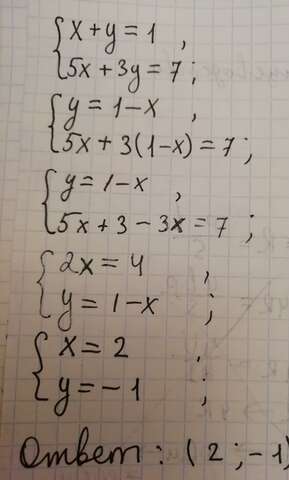 x+y=1 ,
5x+3y=7 ;
y=1-x ,
5x+3(1-x)=7 ;
y=1-x ,
5x+3-3x=7 ;
2x=4 ,
y=1-x ;
x=2 ,
y=-1 ;
Ответ: (2;-1)